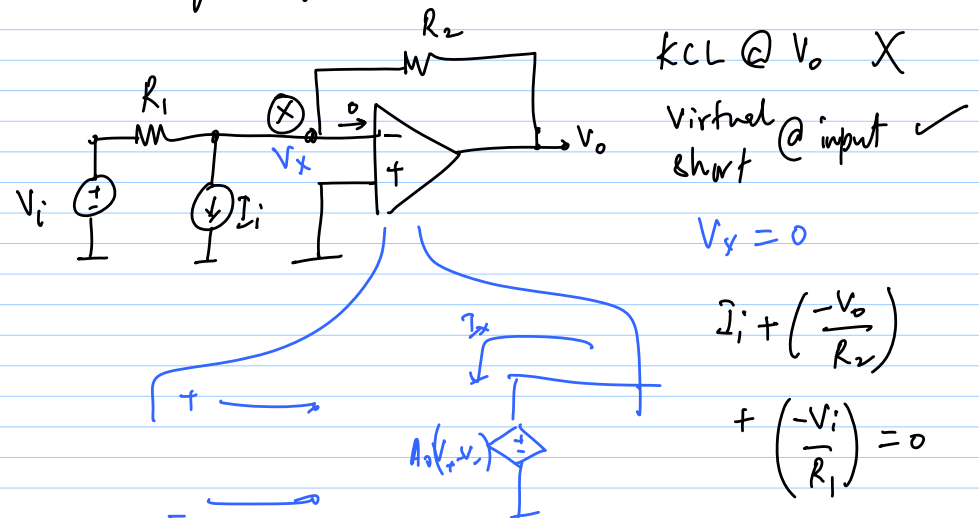 R₂
KCL @ V₀ X
R₁
X
0
−
+
Vₓ
V₀
virtual short @ input ✓
Vᵢ
+
−
Iᵢ
Vₓ = 0
Iₓ
Iᵢ + (−V₀/R₂)
+ (−Vᵢ/R₁) = 0
+
A₀(V₊-V₋)
+
−
−